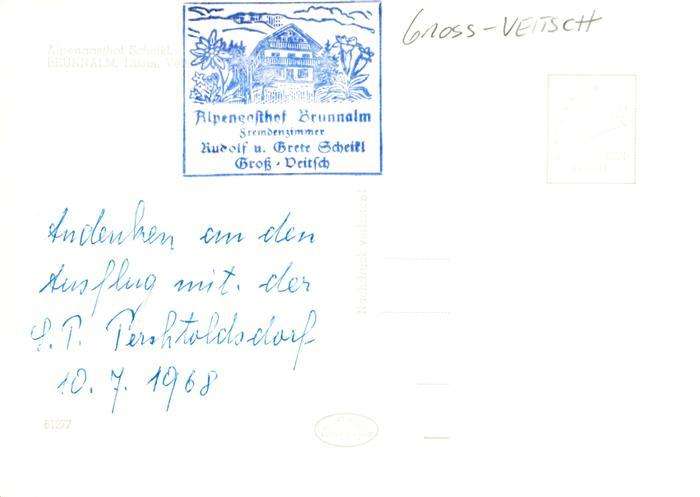 GROSS-VEITSCH
Alpengasthof Scheikl
BRUNNALM,
Alpengasthof Brunnalm
Fremdenzimmer
Rudolf u. Grete Scheikl
Groß-Veitsch
Andenken an den
Ausflug mit. der
Pershtoldsdorf
10. 7. 1968
Nachdruck verboten!
61277